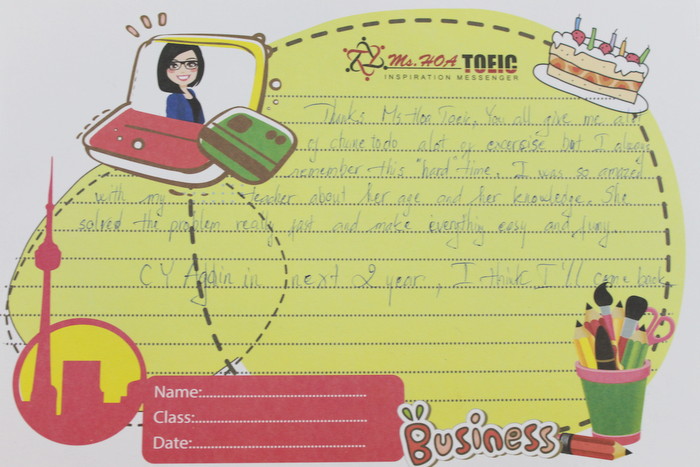 Ms. HOA TOEIC
INSPIRATION MESSENGER
Thanks Ms Hoa Toeic, You all give me alot
of to do alot of exercise but I always
remember this "hard" time. I was so amazed
with my teacher about her age and her knowledge. She
solved the problem really fast and make everything easy and funy.
C Y Again in next 2 year, I think I'll come back
Name:
Class:
Date:
Business